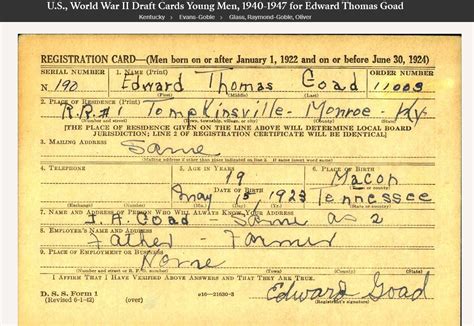 U.S., World War II Draft Cards Young Men, 1940-1947 for Edward Thomas Goad
Kentucky › Evans-Goble › Glass, Raymond-Goble, Oliver
REGISTRATION CARD—(Men born on or after January 1, 1922 and on or before June 30, 1924)
SERIAL NUMBER 1. NAME (Print) ORDER NUMBER
N. 190 Edward Thomas Goad 11003
(First) (Middle) (Last)
2. PLACE OF RESIDENCE (Print)
R.R.#1 Tompkinsville- Monroe- Ky
(Number and street) (Town, township, village, or city) (County) (State)
[THE PLACE OF RESIDENCE GIVEN ON THE LINE ABOVE WILL DETERMINE LOCAL BOARD
JURISDICTION; LINE 2 OF REGISTRATION CERTIFICATE WILL BE IDENTICAL]
3. MAILING ADDRESS
Same
(Mailing address if other than place indicated on line 2. If same insert word same)
4. TELEPHONE 5. AGE IN YEARS 6. PLACE OF BIRTH
19 Macon
DATE OF BIRTH
May 15, 1923 Tennessee
7. NAME AND ADDRESS OF PERSON WHO WILL ALWAYS KNOW YOUR ADDRESS
Goad - Same as 2
8. EMPLOYER'S NAME AND ADDRESS
Father - Farmer
9. PLACE OF EMPLOYMENT OR BUSINESS
Home
(Number and street or R. F. D. number) (Town) (County) (State)
I AFFIRM THAT I HAVE VERIFIED ABOVE ANSWERS AND THAT THEY ARE TRUE.
D. S. S. Form 1
(Revised 6-1-42) (over) 16—21630-2 Edward Goad
(Registrant's signature)